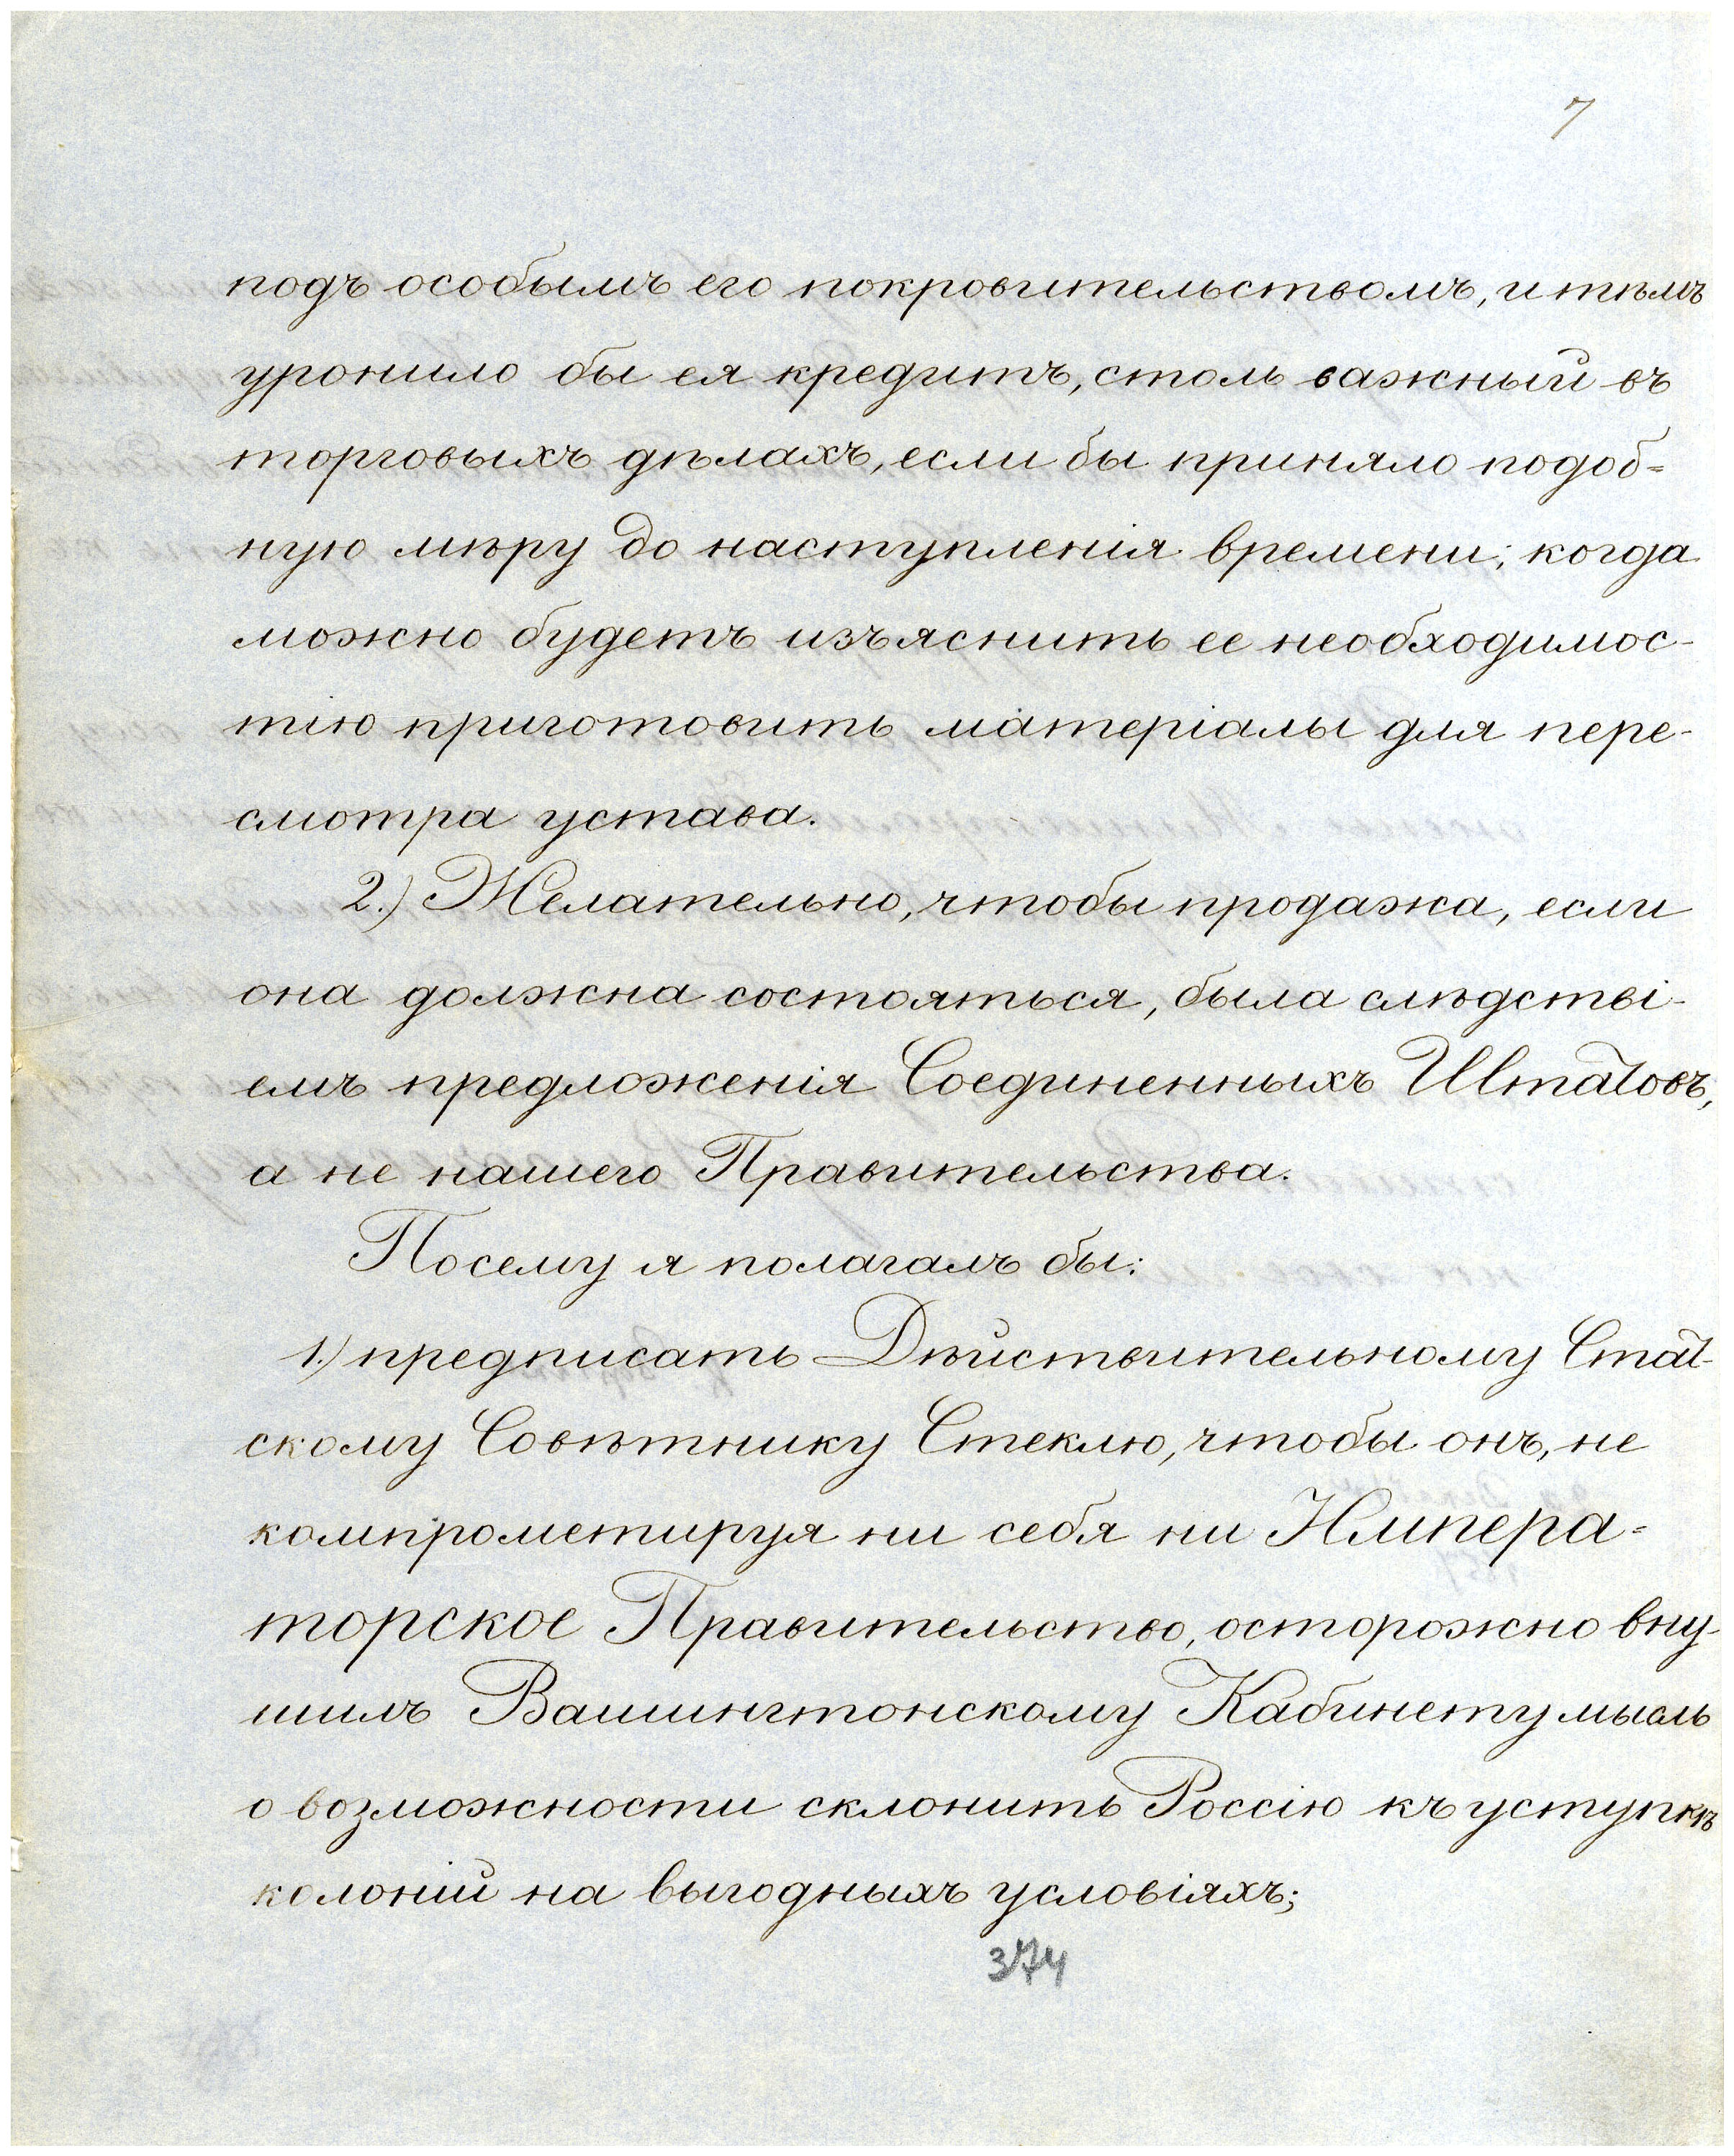 7
подъ особымъ его покровительствомъ, и тѣмъ
уронило бы ея кредитъ, столь важный въ
торговыхъ дѣлахъ, если бы приняло подоб=
ную мѣру до наступленія времени, когда
можно будетъ изъяснить ее необходимос-
тію приготовить матеріалы для пере-
смотра устава.
2.) Желательно, чтобы продажа, если
она должна состояться, была слѣдстві-
емъ предложенія Соединенныхъ Штатовъ,
а не нашего Правительства.
Посему я полагалъ бы:
1.) предписать Дѣйствительному Стат-
скому Совѣтнику Стеклю, чтобы онъ, не
компрометируя ни себя ни Импера=
торское Правительство, осторожно вну-
шилъ Вашингтонскому Кабинету мысль
о возможности склонить Россію къ уступкѣ
колоній на выгодныхъ условіяхъ;
374